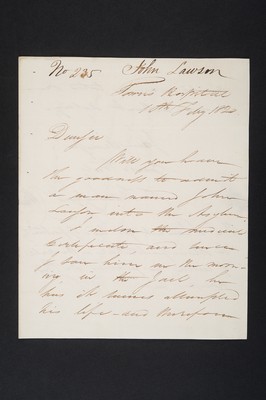 No 235 John Lawson
Town's Hospital
15th
Dear Sir
Will you have
the goodness to admit
a man named John
Lawson into the Asylum,
I enclose the medical
Certificate, and since
I saw him in the morn-
ing in the Jail, he
has it seems attempted
his life - and therefore